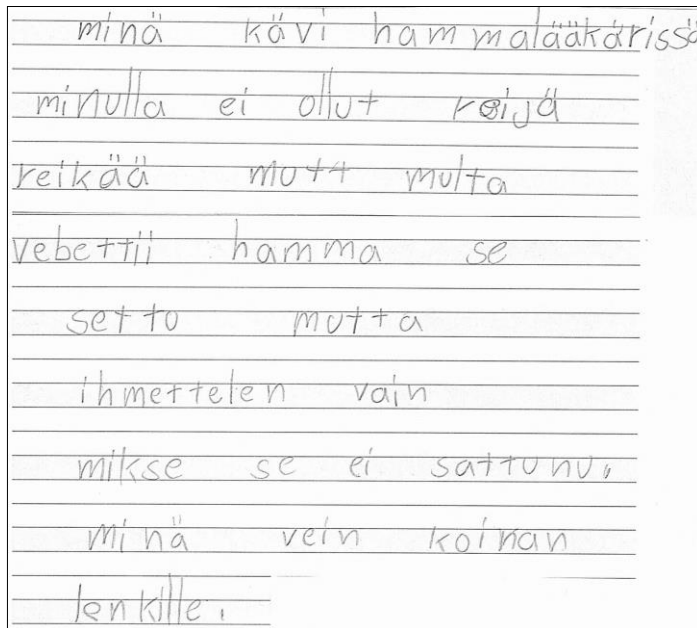 minä kävi hammalääkärissä
minulla ei ollut reijä
reikää mutt multa
vebettii hamma se
setto mutta
ihmettelen vain
mikse se ei sattunu.
minä vein koiran
lenkille.